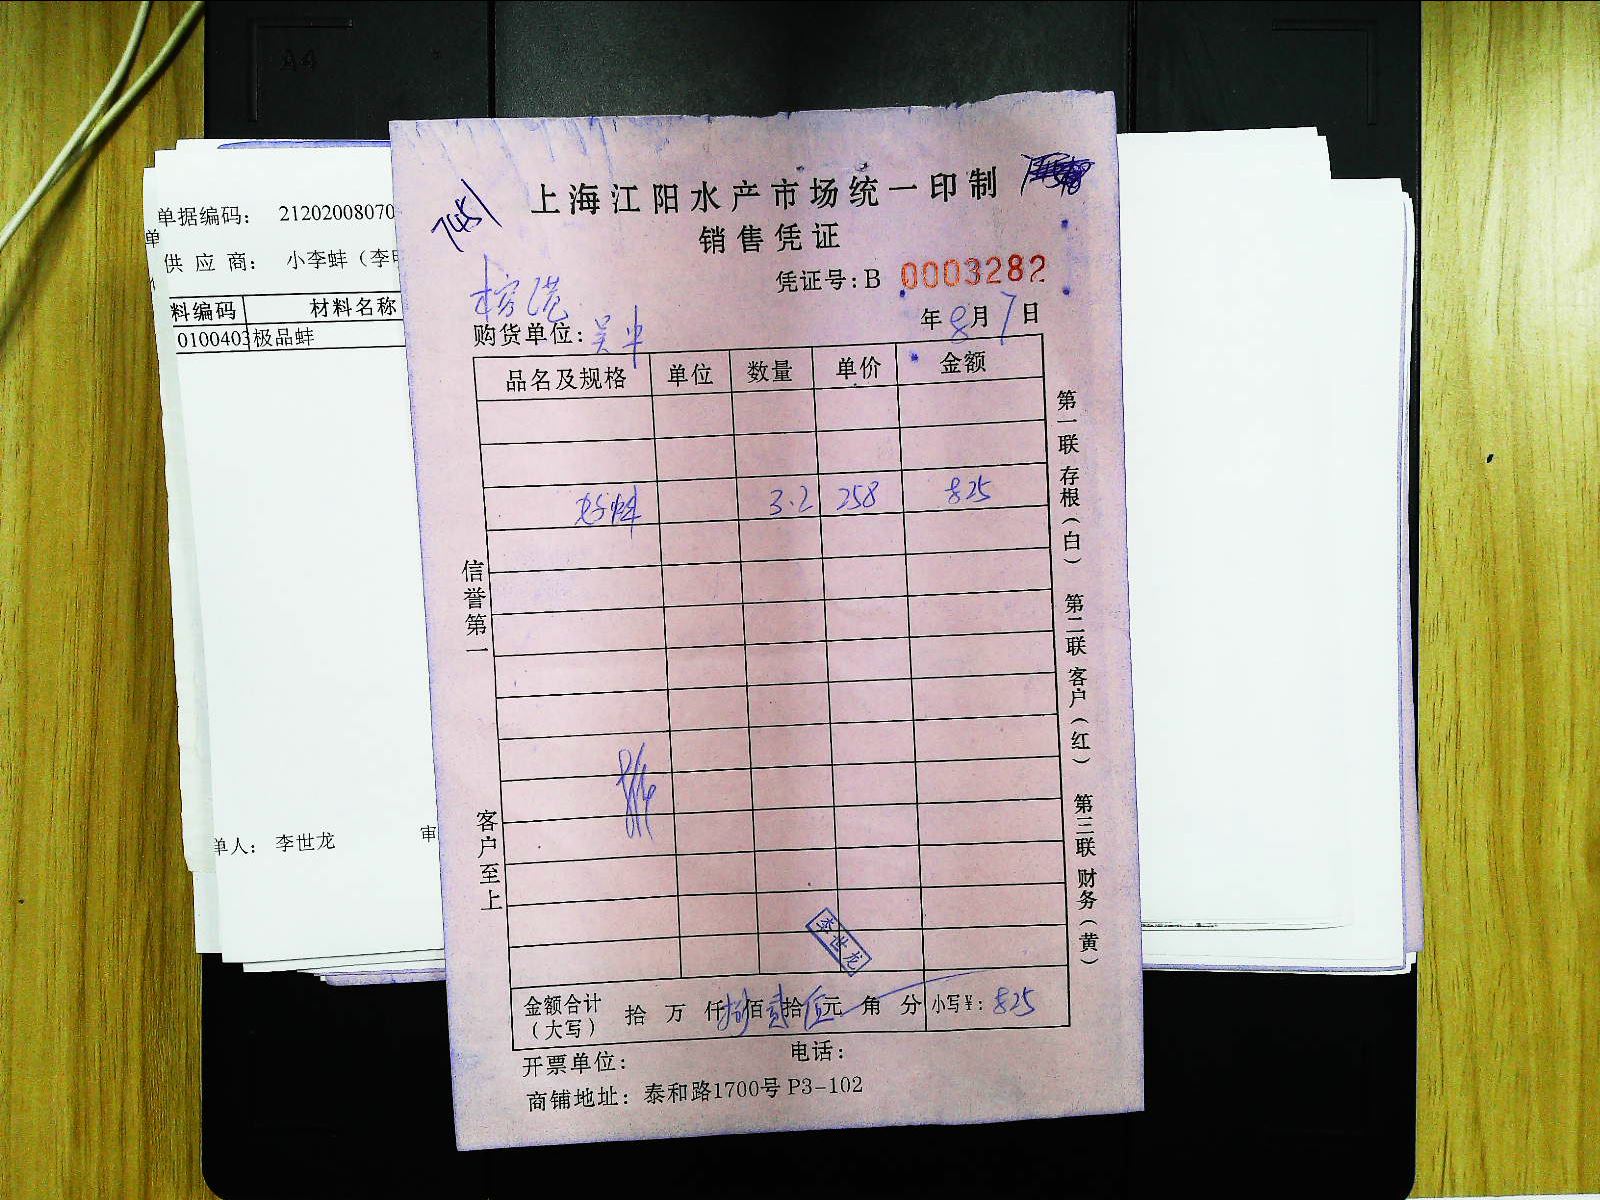 A4
单据编码： 21202008070
单
供 应 商： 小李蚌（李
料编码 材料名称
0100403 极品蚌
单人： 李世龙 审
7451
上海江阳水产市场统一印制
销售凭证
凭证号：B 0003282
年 8 月 7 日
购货单位：
品名及规格 单位 数量 单价 金额
好蚌 3.2 258 825
信誉第一
客户至上
第一联 存根（白） 第二联 客户（红） 第三联 财务（黄）
李世龙
金额合计（大写） 拾 万 仟 捌佰 贰拾 伍元 角 分 小写¥：825
开票单位： 电话：
商铺地址：泰和路1700号 P3-102